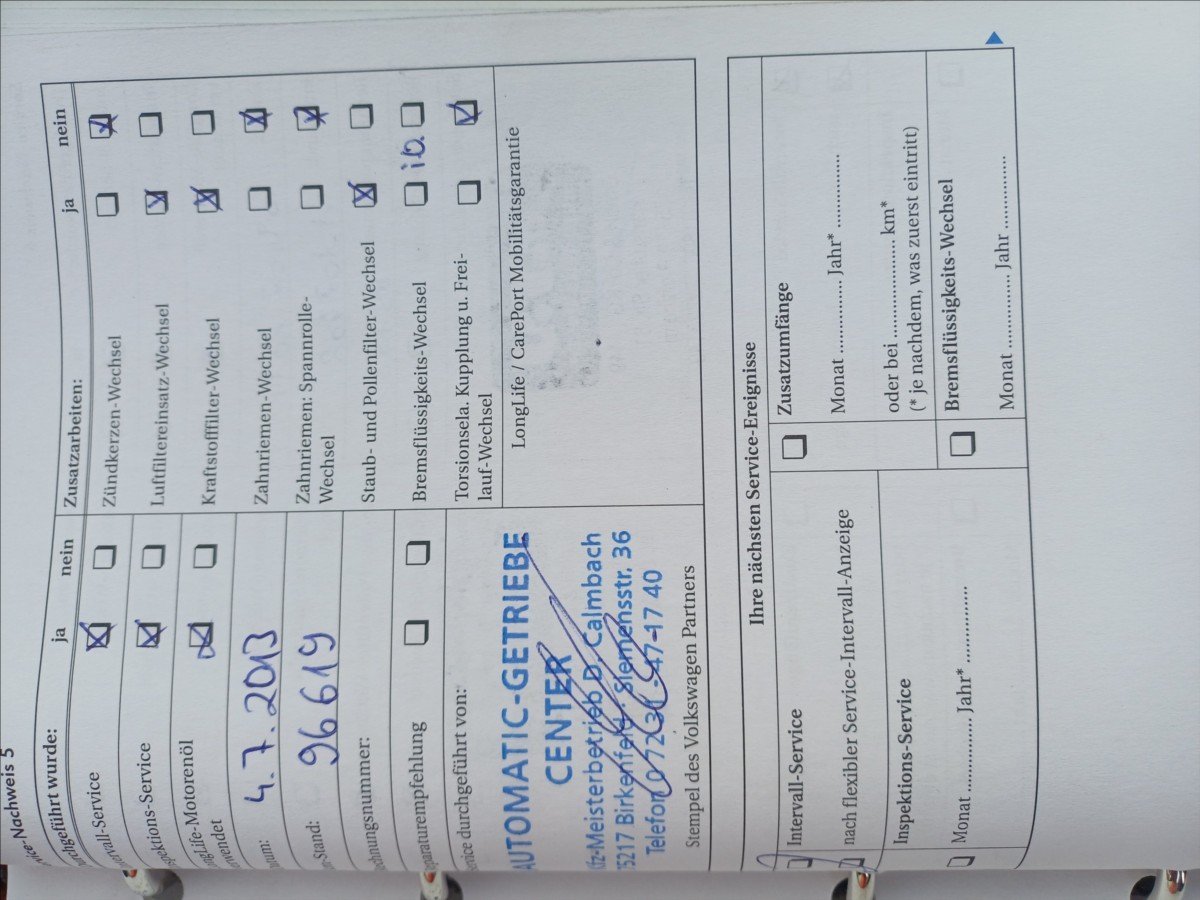 vice-Nachweis 5
rchgeführt wurde: ja nein
tervall-Service
pektions-Service
ngLife-Motorenöl
wendet
tum: 4.7.2013
-Stand: 96619
chnungsnummer:
paraturempfehlung
rvice durchgeführt von:
AUTOMATIC-GETRIEBE
CENTER
Kfz-Meisterbetrieb D. Calmbach
75217 Birkenfeld · Siemensstr. 36
Telefon 0 72 31 - 47 17 40
Stempel des Volkswagen Partners
Zusatzarbeiten: ja nein
Zündkerzen-Wechsel
Luftfiltereinsatz-Wechsel
Kraftstofffilter-Wechsel
Zahnriemen-Wechsel
Zahnriemen: Spannrolle-
Wechsel
Staub- und Pollenfilter-Wechsel
Bremsflüssigkeits-Wechsel i.O.
Torsionsela. Kupplung u. Frei-
lauf-Wechsel
LongLife / CarePort Mobilitätsgarantie
Ihre nächsten Service-Ereignisse
Intervall-Service
nach flexibler Service-Intervall-Anzeige
Inspektions-Service
Monat .................. Jahr* ..................
Zusatzumfänge
Monat ............... Jahr* ...............
oder bei ........................ km*
(* je nachdem, was zuerst eintritt)
Bremsflüssigkeits-Wechsel
Monat ............... Jahr ...............